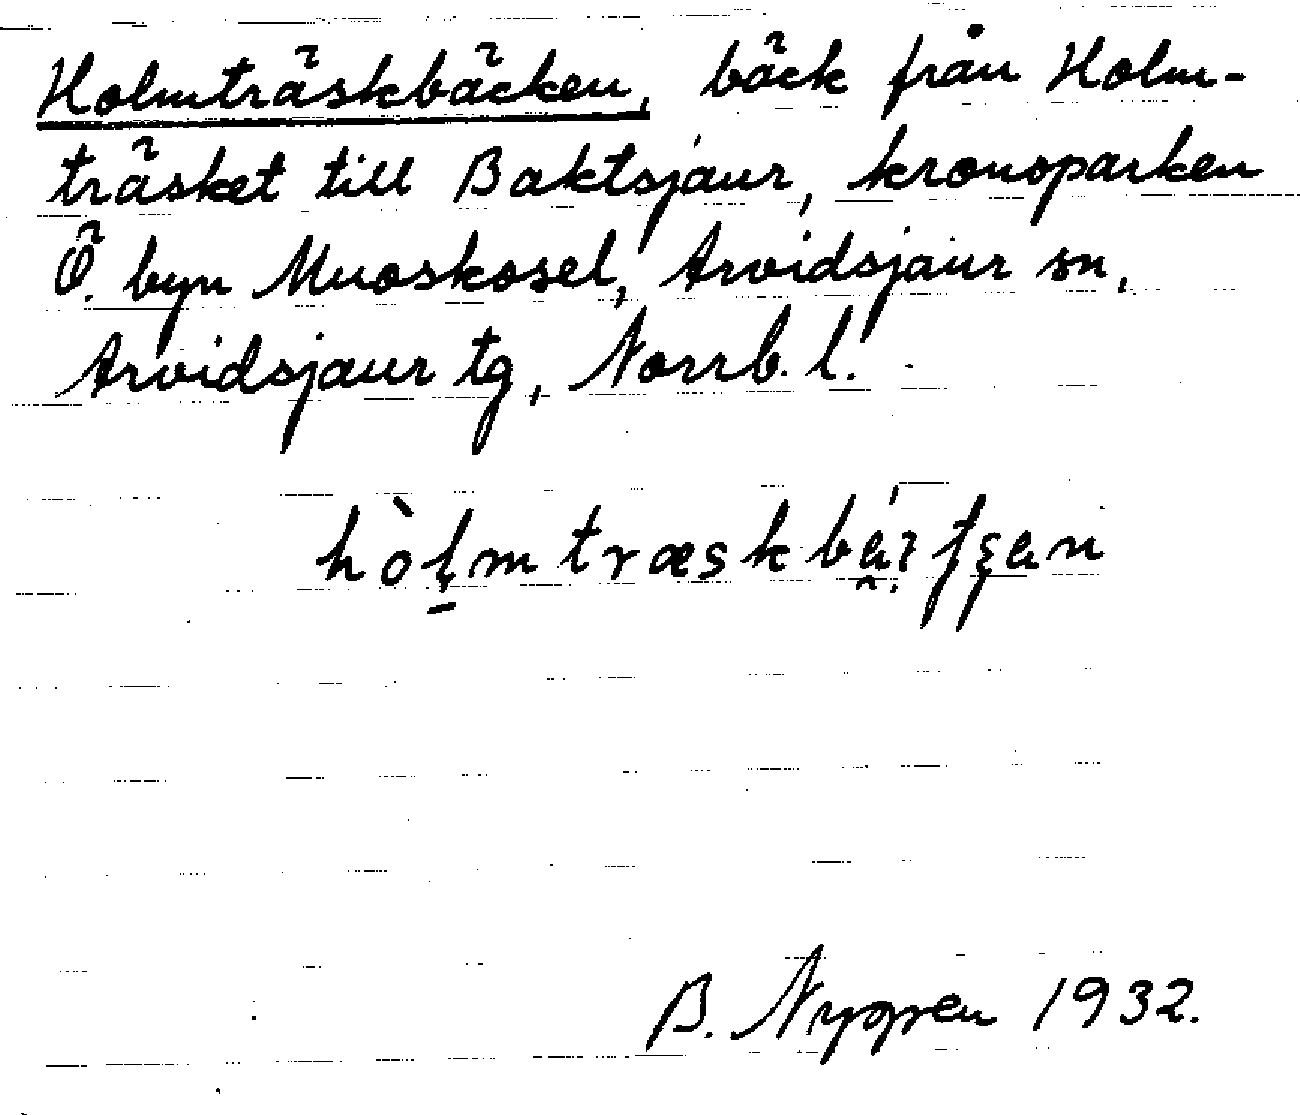 Holmträskbäcken, bäck från Holm-
träsket till Baktsjaur, kronoparken
Ö. byn Muoskosel, Arvidsjaur sn,
Arvidsjaur tg, Norrb. l.
B. Nygren 1932.